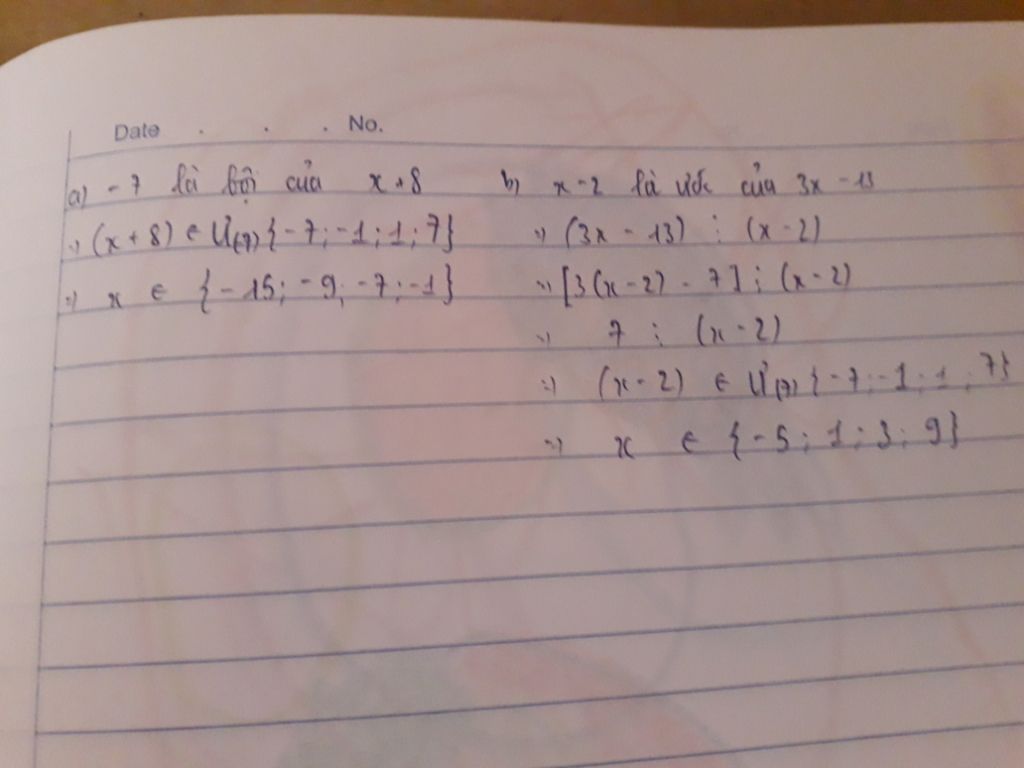 Date . . . No.
a) -7 là bội của x+8
=> (x+8) ∈ Ư(7) {-7; -1; 1; 7}
=> x ∈ {-15; -9; -7; -1}
b) x-2 là ước của 3x-13
=> (3x-13) ⋮ (x-2)
=> [3(x-2)-7] ⋮ (x-2)
=> 7 ⋮ (x-2)
=> (x-2) ∈ Ư(7) {-7; -1; 1; 7}
=> x ∈ {-5; 1; 3; 9}